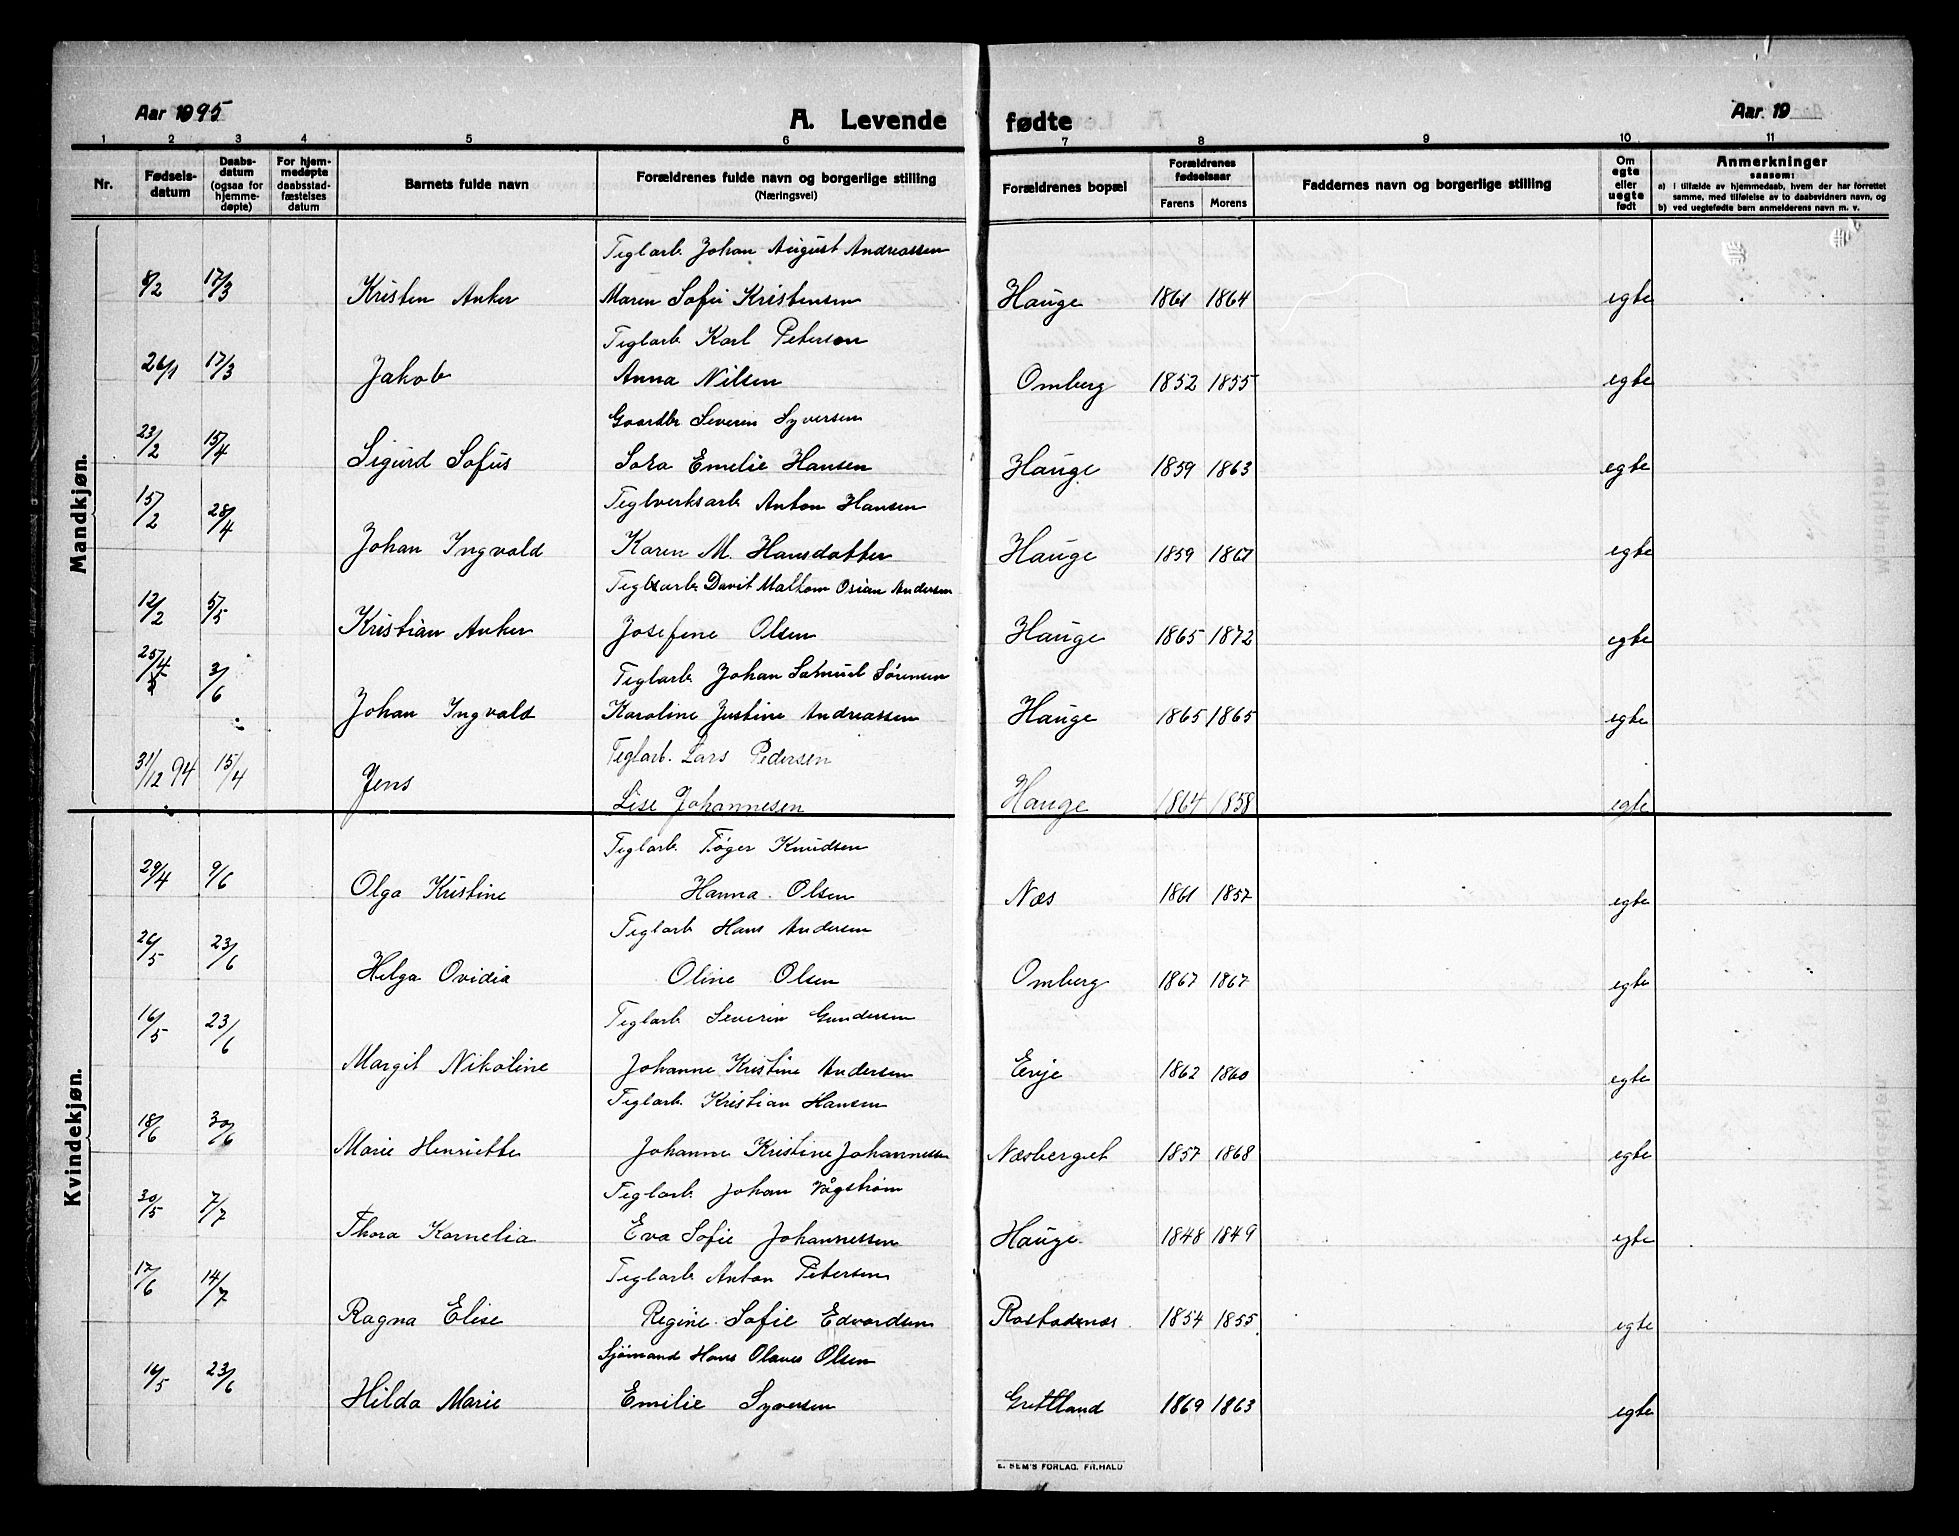 Aar 1895
A. Levende fødte
Aar 19
1 2 3 4 5 6 7 8 9 10 11
Nr.
Fødsels-
datum
Daabs-
datum
(ogsaa for
hjemme-
døpte)
For hjem-
medøpte
daabsstad-
fæstelses
datum
Barnets fulde navn
Forældrenes fulde navn og borgerlige stilling
(Næringsvei)
Forældrenes bopæl
Forældrenes
fødselsaar
Farens Morens
Faddernes navn og borgerlige stilling
Om
egte
eller
uegte
født
Anmerkninger
sansom:
a) i tilfælde av hjemmedaab, hvem der har forrettet
samme, med tilføielse av to daabsvidners navn, og
b) ved uegtefødte barn anmelderens navn m. v.
Mandkjøn.
Teglarb. Johan August Andreassen
8/2 17/3 Kristen Anker Maren Sofie Kristensen Hauge 1861 1864 egte
Teglarb. Karl Petersen
26/1 17/3 Jakob Anna Nilsen Omberg 1852 1855 egte
Gaardbr Severin Syversen
23/2 15/4 Sigurd Sofus Sora Emelie Hansen Hauge 1859 1863 egte
Teglverksarb Anton Hansen
15/2 28/4 Johan Ingvald Karen M. Hansdatter Hauge 1859 1867 egte
Teglsarb. Davit Maltom Osian Andersen
12/2 5/5 Kristian Anker Josefine Olsen Hauge 1865 1872 egte
Teglarb. Johan Samuel Sørensen
25/4 3/6 Johan Ingvald Karoline Justine Andreassen Hauge 1865 1865 egte
Teglarb. Lars Pedersen
31/12 94 15/4 Jens Lise Johannesen Hauge 1864 1858 egte
Kvindekjøn.
Teglarb. Tøger Knudsen
29/4 9/6 Olga Kristine Hanna Olsen Næs 1861 1857 egte
Teglarb Hans Andersen
26/5 23/6 Helga Ovidia Oline Olsen Omberg 1867 1867 egte
Teglarb Severin Gundersen
16/5 23/6 Margit Nikoline Johanne Kristine Andersen Evje 1862 1860 egte
Teglarb. Kristian Hansen
18/6 30/6 Marie Henriette Johanne Kristine Johannessen Næsberget 1857 1868 egte
Teglarb Johan Vågstrøm
30/5 7/7 Thora Kornelia Eva Sofie Johannessen Hauge 1848 1849 egte
Teglarb Anton Petersen
17/6 14/7 Ragna Elise Regine Sofie Edvardsen Rostadnæs 1854 1855 egte
Sjømand Hans Olaves Olsen
16/5 23/6 Hilda Marie Emilie Syversen Gretland 1869 1863 egte
E. SEM'S FORLAG. FR.HALD